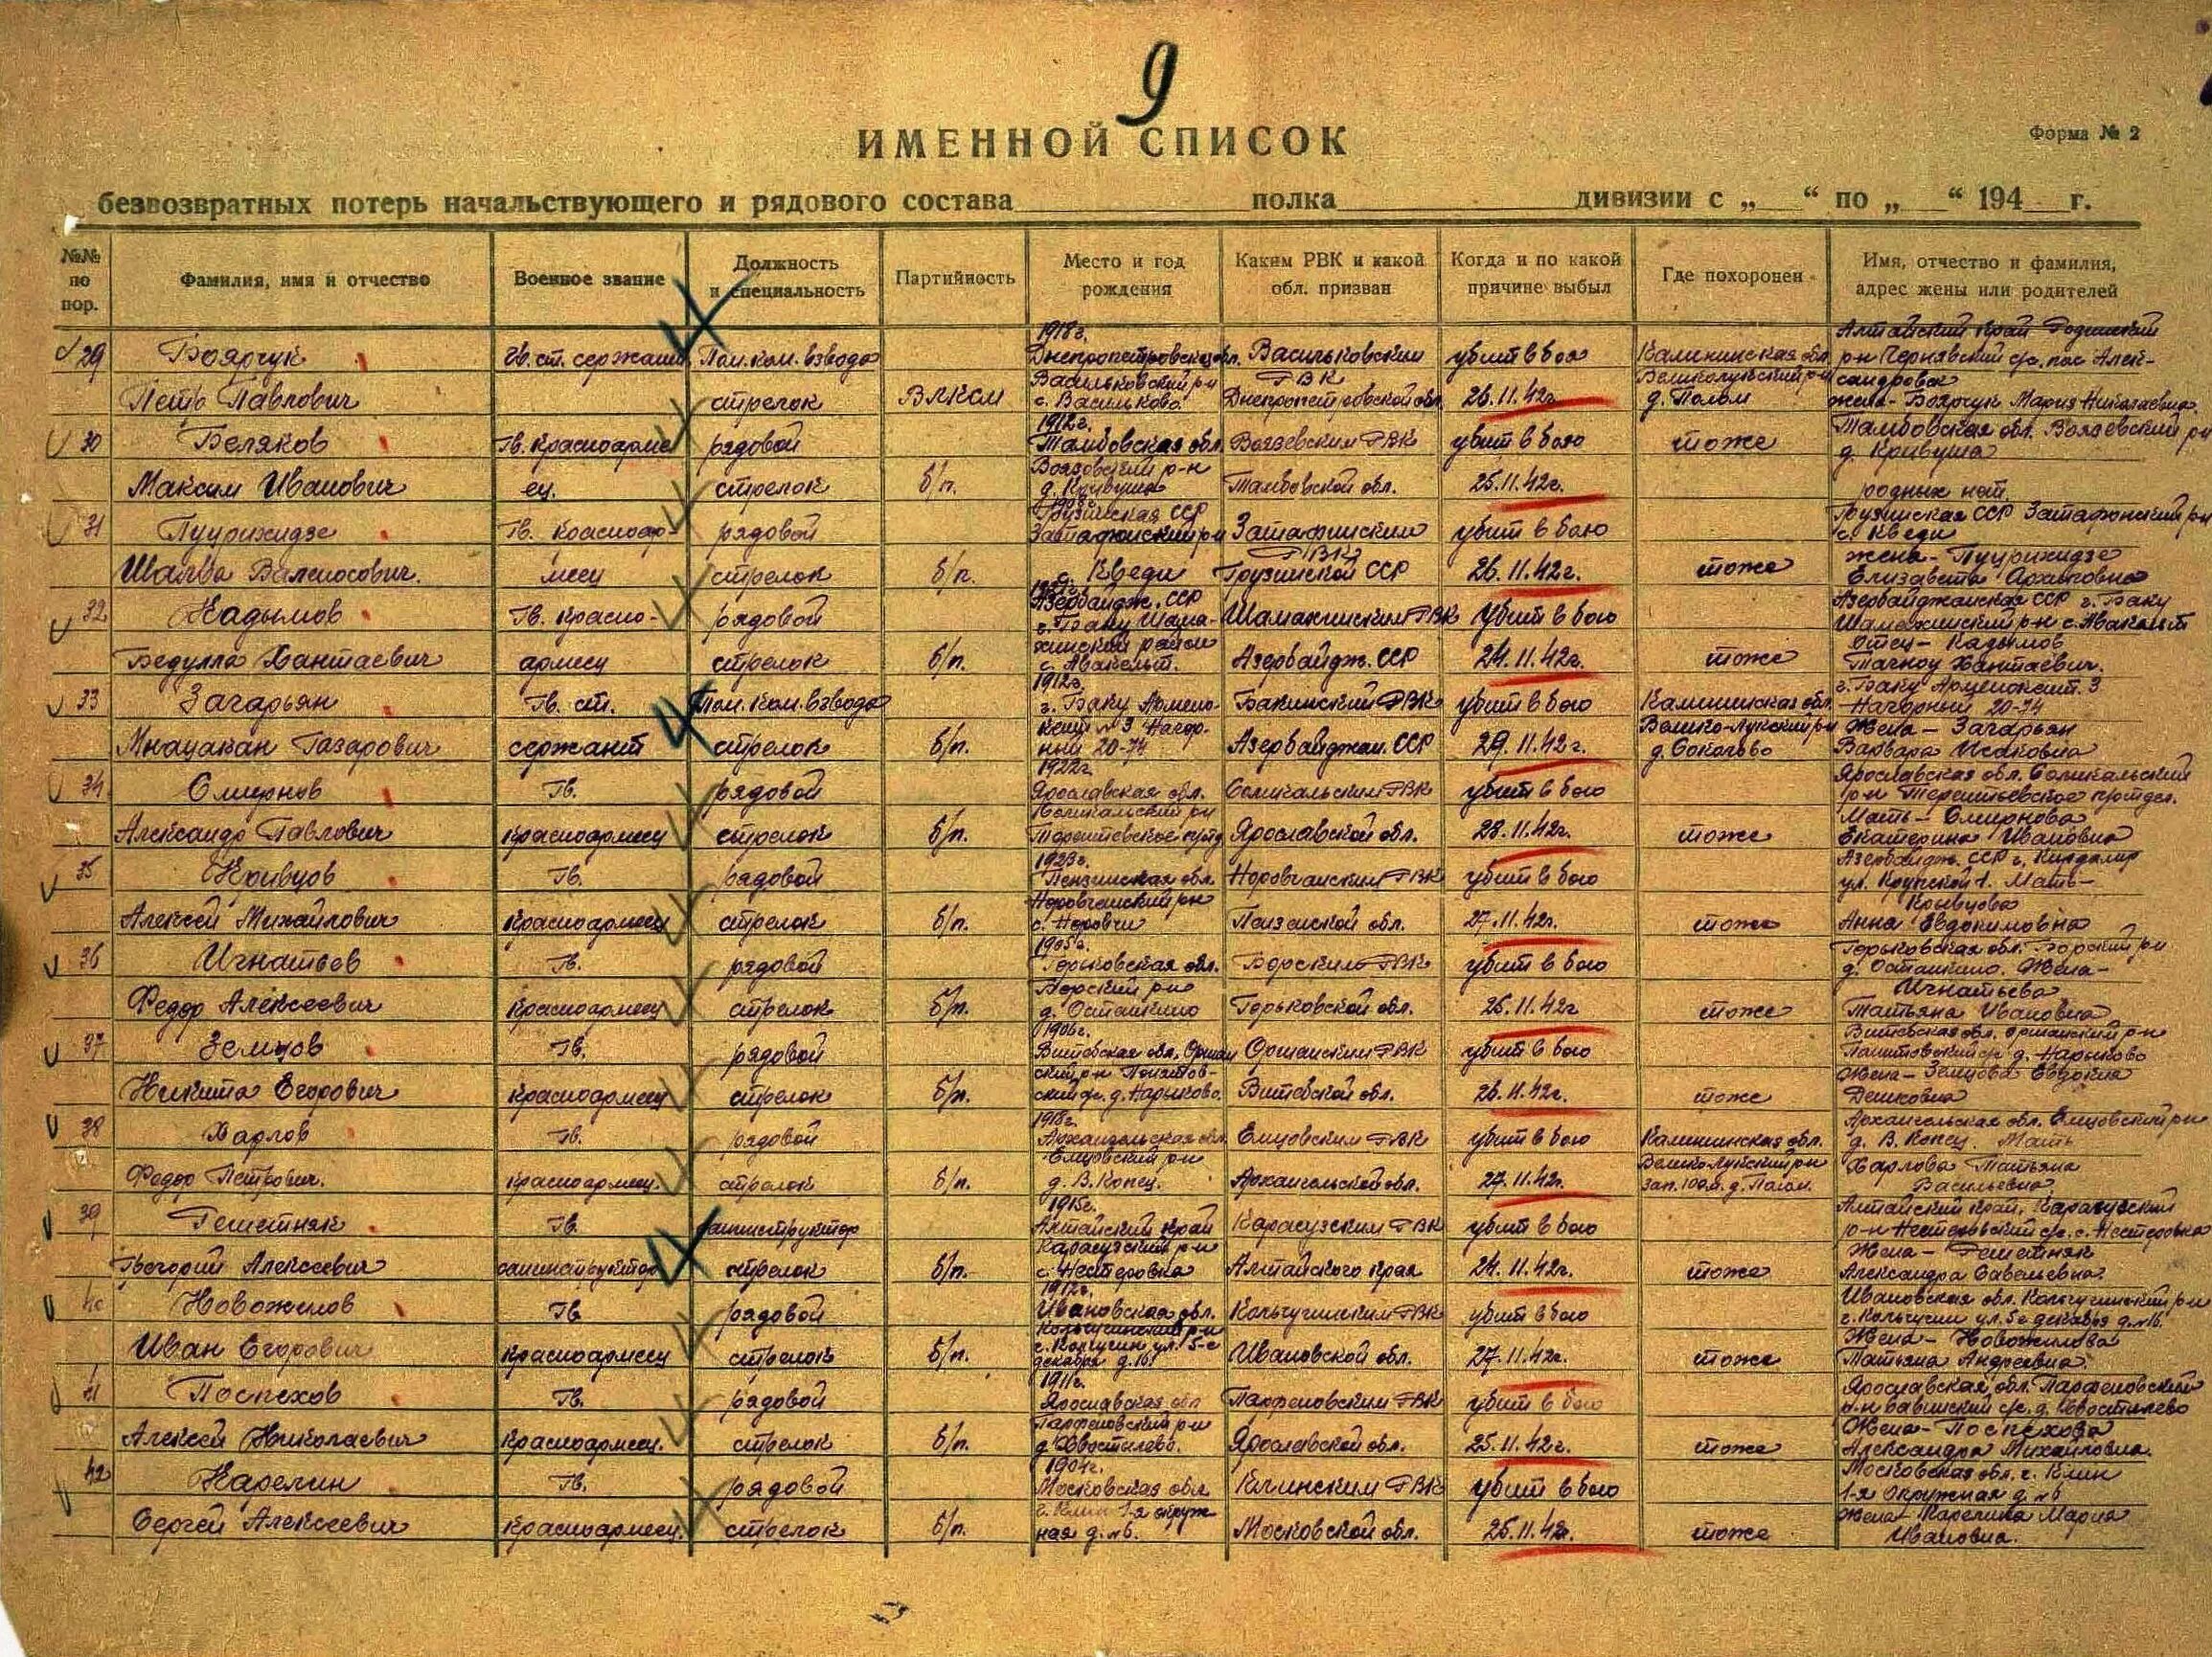 9
ИМЕННОЙ СПИСОК
Форма № 2
безвозвратных потерь начальствующего и рядового состава полка дивизии с „ “ по „ “ 194 г.
№№ по пор.
Фамилия, имя и отчество
Военное звание
Должность и специальность
Партийность
Место и год рождения
Каким РВК и какой обл. призван
Когда и по какой причине выбыл
Где похоронен
Имя, отчество и фамилия, адрес жены или родителей
29 Боярчук Гв. ст. сержант Пом. ком. взвода 1918г. Днепропетровская обл. Васильковским убит в боя Калининская обл. Алтайский край Родинский р-н Чернявский с/с, пос Алек-
Петр Павлович стрелок ВЛКСМ Васильковский р-н с. Васильково РВК Днепропетровской обл. 26.11.42г. Великолукский р-н д. Полом сандровск жена - Боярчук Мария Николаевна
30 Беляков Гв. Красноарме рядовой 1912г. Тамбовская обл. РВК убит в бою тоже Тамбовская обл. р-н д. Кривуша
Максим Иванович ец. стрелок б/п. р-н д. Кривуша Тамбовской обл. 25.11.42г. родных нет.
31 Гв. красноар- рядовой Грузинская ССР убит в бою Грузинская ССР р-н с. Кведи
Шалва мец стрелок б/п. с. Кведи РВК Грузинской ССР 26.11.42г. тоже жена - Елизавета Архиповна
32 Кадымов Гв. красно- рядовой Азербайдж. ССР г. Баку Шама- Шамахинским РВК убит в бою Азербайджанская ССР г. Баку Шамахинский р-н с.
Бедулла Хантаевич армеец стрелок б/п. хинский район с. Азербайдж. ССР 24.11.42г. тоже отец - Кадымов Хантаевич.
33 Загарьян Гв. ст. Пом. ком. взвода 1912г. г. Баку Армено- Бакинский РВК убит в бою Калининская обл. г. Баку 3 Нагорный 20-74
Мнацакан Газарович сержант стрелок б/п. кент № 3 Нагор- ный 20-74 Азербайджан. ССР 29.11.42г. Велико-Лукский р-н д. Соколово Жена - Загарьян Варвара Исаковна
34 Смирнов Гв. рядовой 1922г. Ярославская обл. РВК убит в бою Ярославская обл. р-н
Александр Павлович красноармеец стрелок б/п. Ярославской обл. 28.11.42г. тоже Мать - Смирнова Екатерина Ивановна
35 Кривцов Гв. рядовой 1923г. Пензинская обл. Норовчанским РВК убит в бою Азербайдж. ССР г. ул. Крупской 1. Мать -
Алексей Михайлович красноармеец стрелок б/п. Норовчанский р-н с. Норовчи Пензенской обл. 27.11.42г. тоже Кривцова Анна Евдокимовна
36 Игнатьев Гв. рядовой 1905г. Горьковская обл. Борским РВК убит в бою Горьковская обл. Борский р-н д. Осташкино. Жена -
Федор Алексеевич красноармеец стрелок б/п. Борский р-н д. Осташкино Горьковской обл. 25.11.42г тоже Игнатьева Татьяна Ивановна
37 Земцов Гв. рядовой 1906г. Витебская обл. Оршан Оршанским РВК убит в бою Витебская обл. Оршанский р-н с/с д. Нарыково
Никита Егорович красноармеец стрелок б/п. ский р-н с/с. д. Нарыково. Витебской обл. 26.11.42г. тоже Жена - Земцова Евдокия
38 Харлов Гв. рядовой 1918г. Архангельская обл. Емцовским РВК убит в бою Калининская обл. Архангельская обл. Емцовский р-н д. В. Конец. Мать
Федор Петрович. красноармеец. стрелок б/п. Емцовский р-н д. В. Конец. Архангельской обл. 27.11.42г. Велико-Лукский р-н зап. 100 м. д. Полом. Харлова Татьяна Васильевна
39 Решетняк Гв. санинструктор 1915г. Алтайский край Карасузским РВК убит в бою Алтайский край, Карасузский р-н Нестеровский с/с. с. Нестеровка
Григорий Алексеевич санинструктор стрелок б/п. Карасузский р-н с. Нестеровка Алтайского края 24.11.42г. тоже Жена - Решетняк Александра Савельевна.
40 Новожилов Гв рядовой 1912г. Ивановская обл. Кольчугинским РВК убит в бою Ивановская обл. Кольчугинский р-н г. Кольчугин ул. 5е декабря д. №16.
Иван Егорович красноармеец стрелок б/п. Кольчугинский р-н г. Колчугин ул. 5-е декабря д. 16. Ивановской обл. 27.11.42г. тоже Жена - Новожилова Татьяна Андреевна.
41 Поспехов Гв. рядовой 1911г. Ярославская обл Парфеновским РВК убит в бою Ярославская обл. Парфеновский р-н с/с. д. Хвостилево
Алексей Николаевич красноармеец. стрелок б/п. Парфеновский р-н д. Хвостилево. Ярославской обл. 25.11.42г. тоже Жена - Поспехова Александра Михайловна.
42 Карелин Гв. рядовой 1904г. Московская обл Клинским РВК убит в бою Московская обл. г. Клин 1-я окружная д. №6
Сергей Алексеевич красноармеец. стрелок б/п. г. Клин 1-я окруж- ная д. №6. Московской обл. 25.11.42г. тоже Жена Карелина Мария Ивановна.